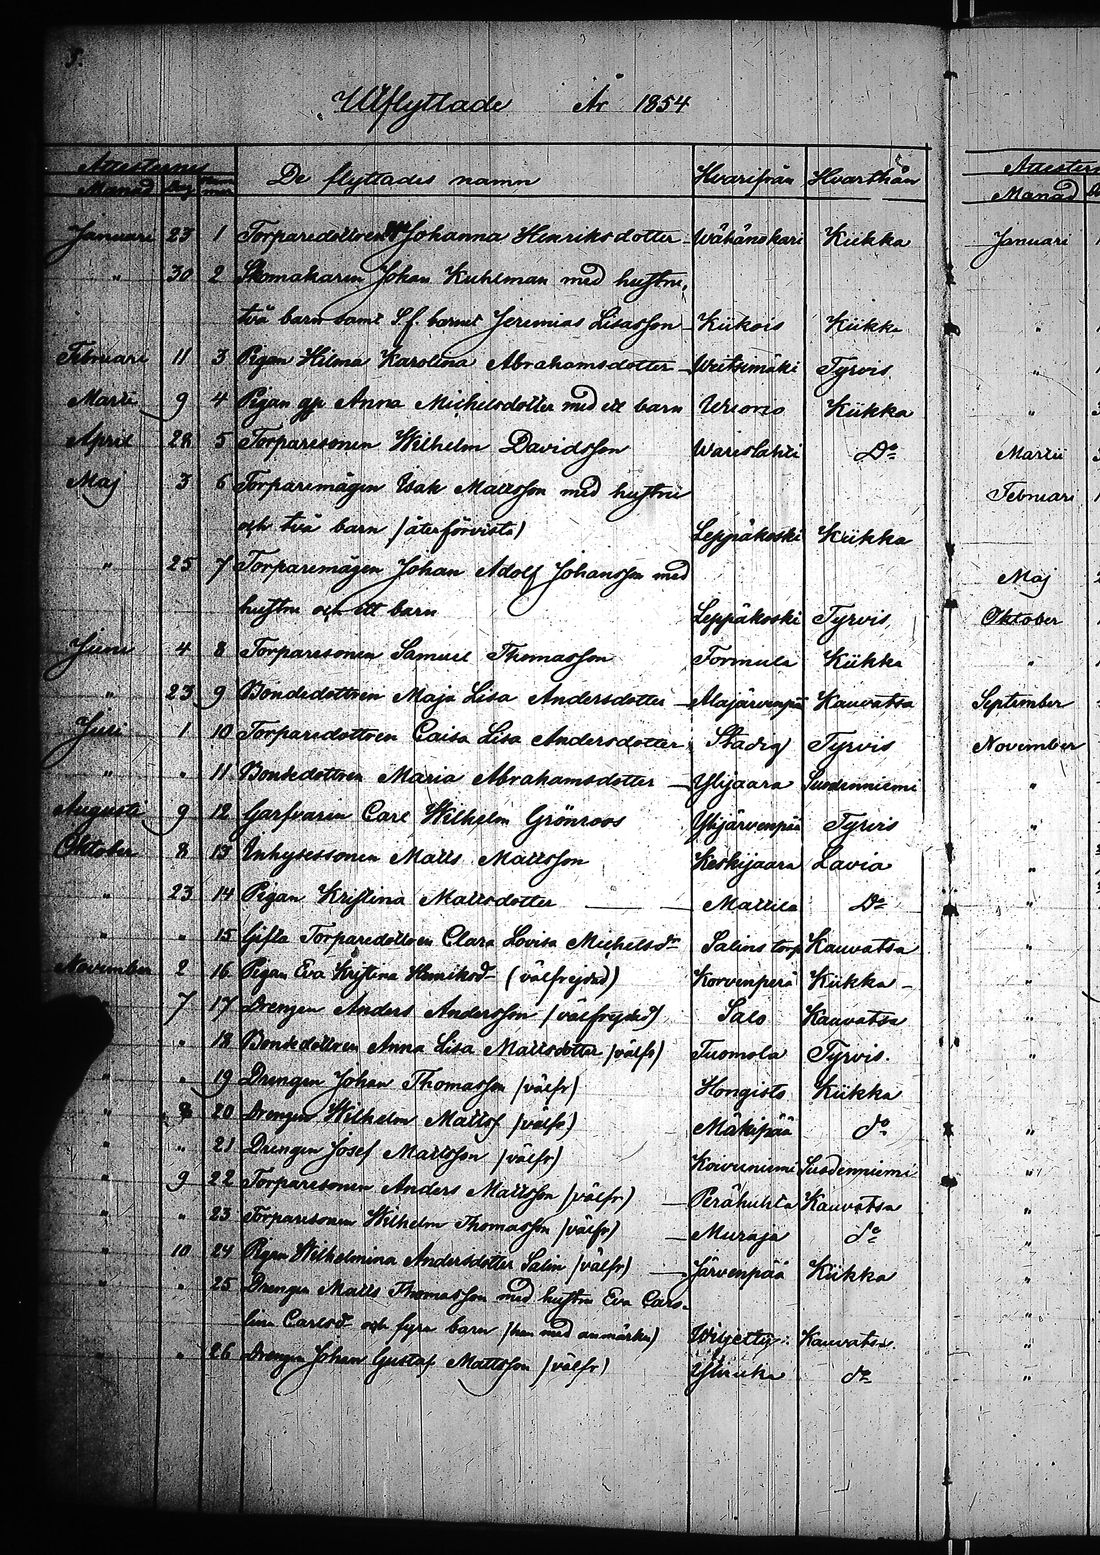 5.
Utflyttade År 1854
Attesternes
Månad Dag Num mer De flyttades namn Hvarifrån Hvarthän
Januari 23 1 Torparedottren Johanna Henriksdotter Wähänskari Kiikka
" 30 2 Skomakaren Johan Kuhlman med hustru,
två barn samt S.f. barnet Jeremias Lisasson Kiikois Kiikka
Februari 11 3 Pigan Hilma Karolina Abrahamsdotter Tyrvis
Martii 9 4 Pigan Anna Michelsdotter med ett barn Kiikka
April 28 5 Torparesonen Wilhelm Davidsson Warislahti Do
Maj 3 6 Torparemågen Isak Mattsson med hustru
och två barn (återförvista) Leppäkoski Kiikka
" 25 7 Torparemågen Johan Adolf Johansson med
hustru och ett barn Leppäkoski Tyrvis
Juni 4 8 Torparesonen Samuel Thomasson Tormula Kiikka
" 23 9 Bondedottren Maja Lisa Andersdotter Alajärvenpää Kauvatsa
Juli 1 10 Torparedottren Caisa Lisa Andersdotter Stadig Tyrvis
" " 11 Bondedottren Maria Abrahamsdotter Ylijaara Suodenniemi
Augusti 9 12 Garfvaren Carl Wilhelm Grönroos Ylijärvenpää Tyrvis
Oktober 8 13 Inhysessonen Matts Mattsson Keskijaara Lavia
" 23 14 Pigan Kristina Mattsdotter Mattila Do
" " 15 Gifta Torparedottren Clara Lovisa Michelsdr Salins torp Kauvatsa
November 2 16 Pigan Eva Kristina Henriksdr (välfrejdad) Korvenperä Kiikka
7 17 Drengen Anders Andersson (välfrejdad) Salo Kauvatsa
" 18 Bondedottren Anna Lisa Mattsdotter (välfr) Tuomola Tyrvis.
" " 19 Drengen Johan Thomasson (välfr) Hongisto Kiikka
" 8 20 Drengen Wilhelm Mattss (välfr) Mäkipää do
" " 21 Drengen Josef Mattsson (välfr) Koivuniemi Suodenniemi
" 9 22 Torparesonen Anders Mattsson (välfr) Perähuhta Kauvatsa
" " 23 Torparesonen Wilhelm Thomasson (välfr) Muraja do
" 10 24 Pigan Wilhelmina Andersdotter Salin (välfr) Järvenpää Kiikka
" " 25 Drengen Matts Thomasson med hustru Eva Caro-
lina Carlsdr och fyra barn (han med anmärkn) Kauvatsa
" " 26 Drengen Johan Gustaf Mattsson (välfr) do
Månad
Januari
"
"
"
Martii
Februari
Maj
Oktober
"
September
November